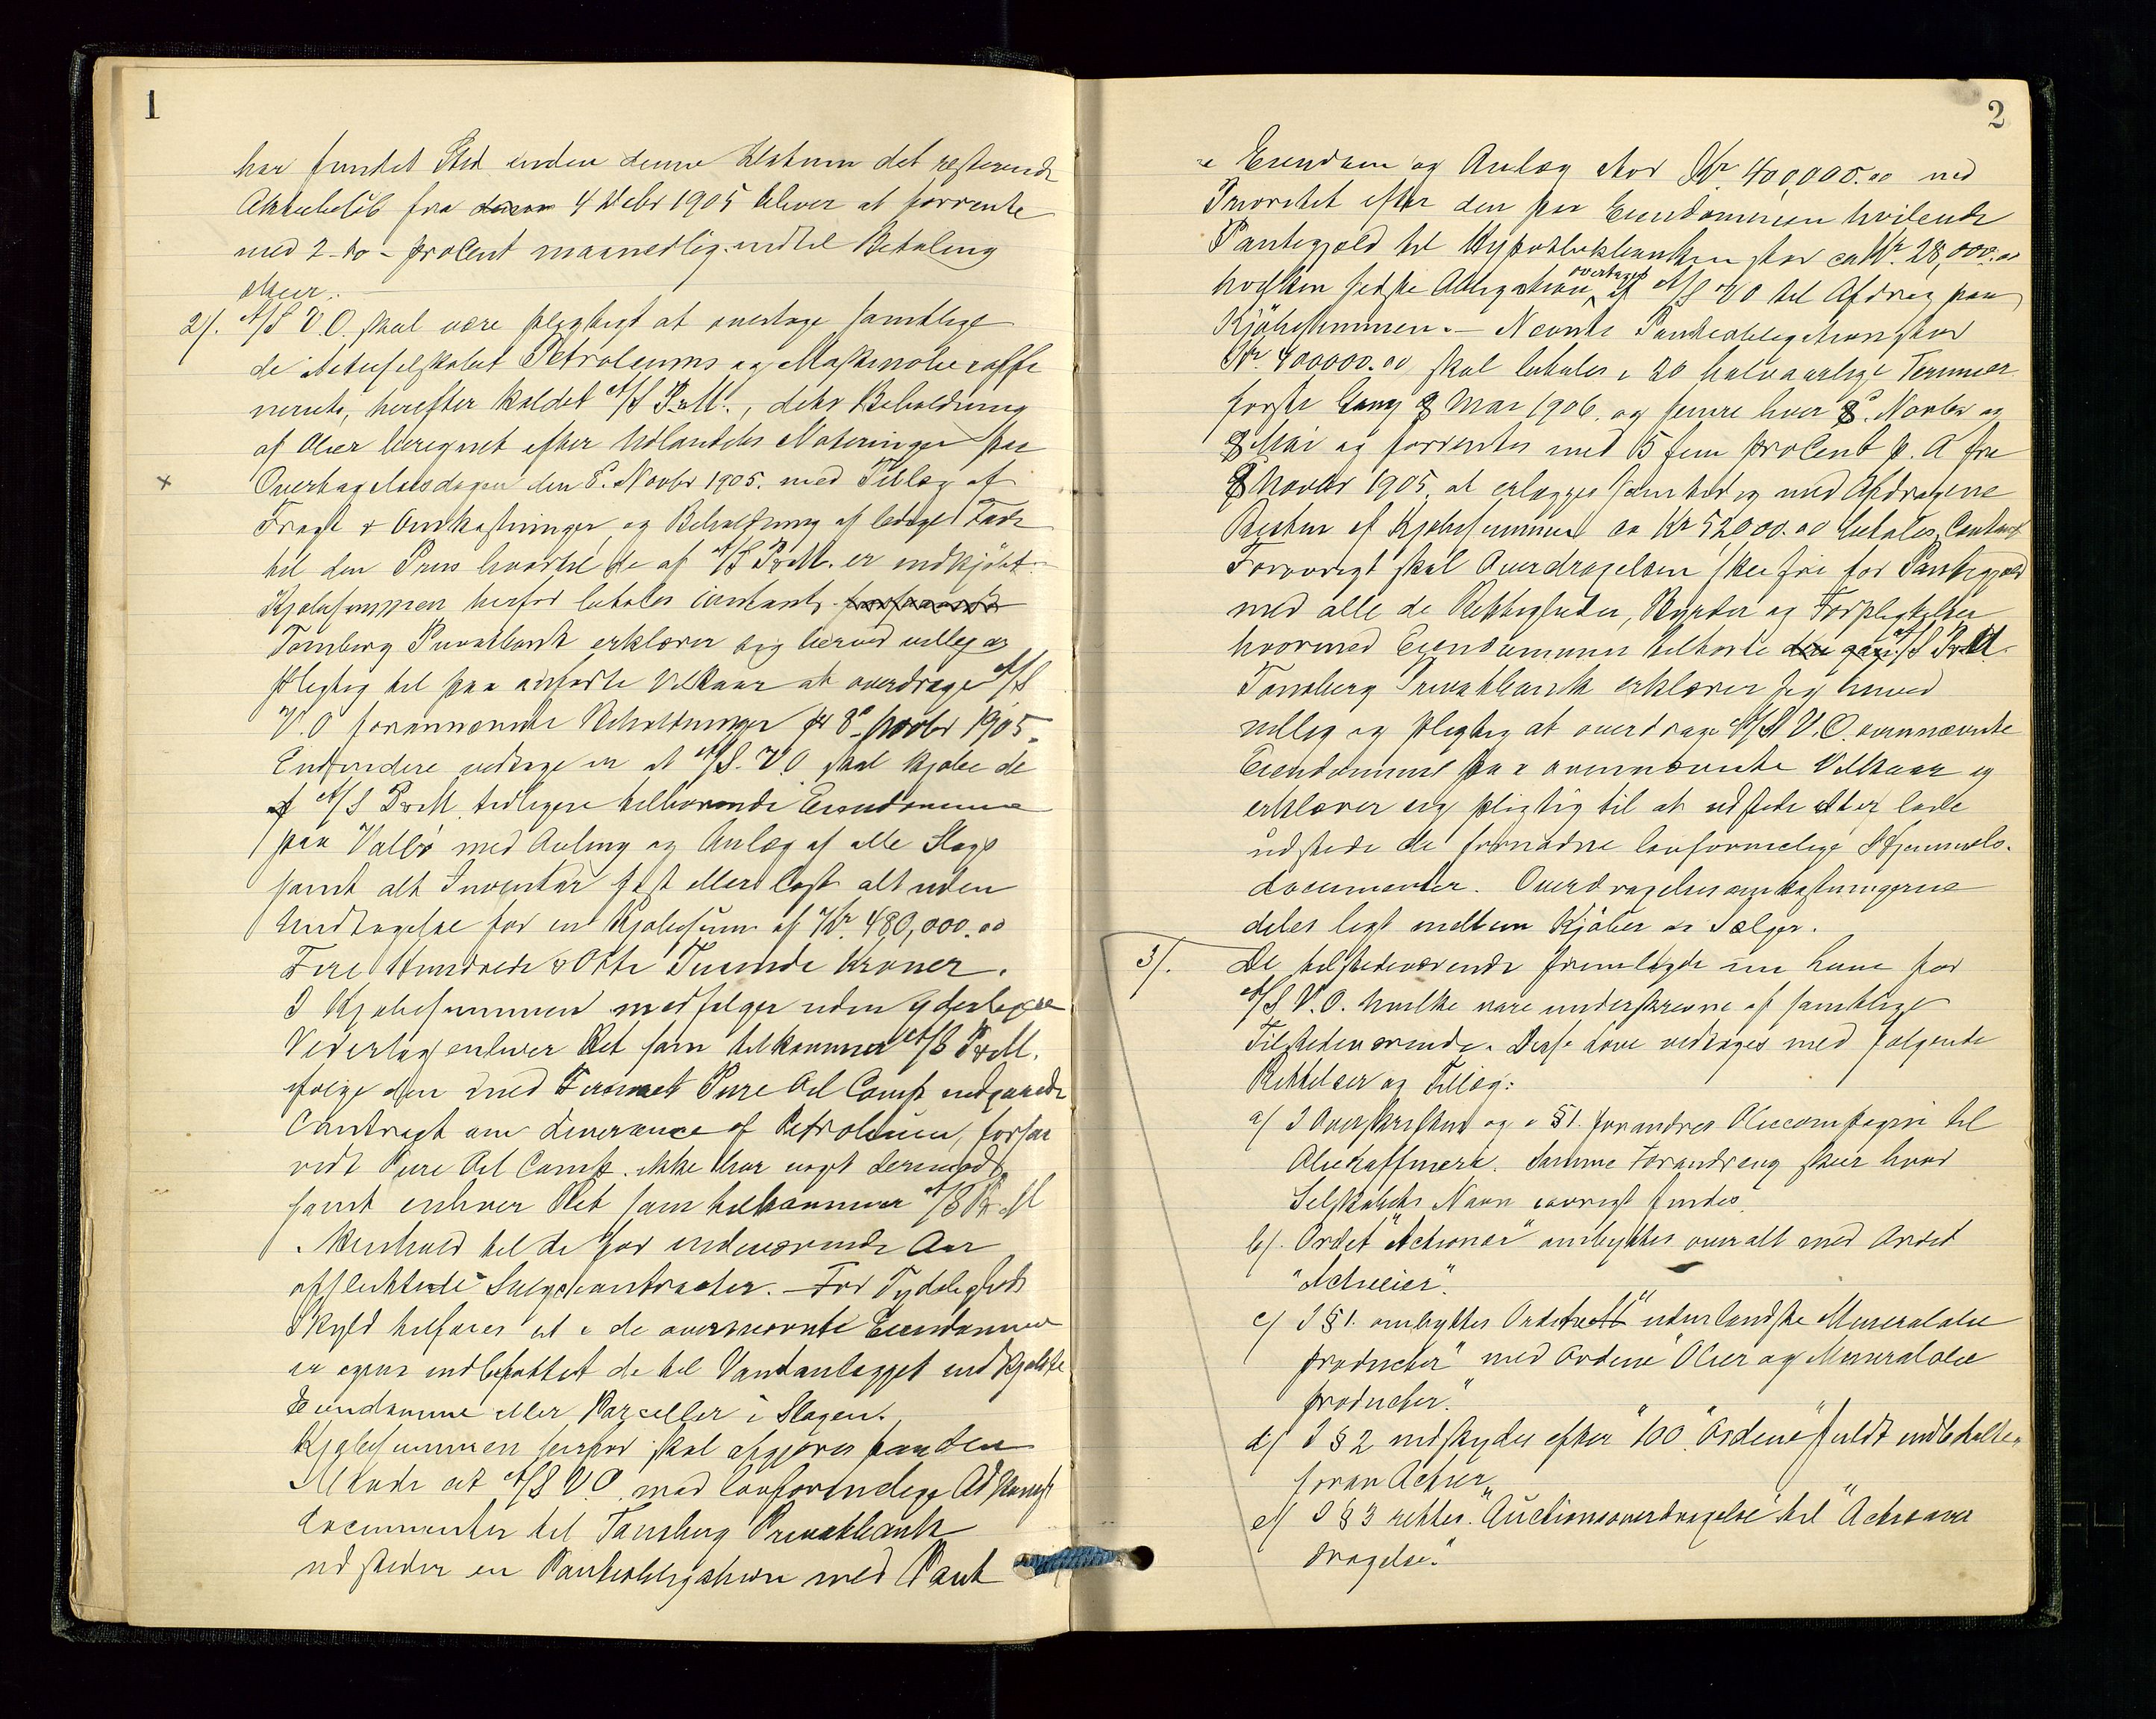 1
har fundet Sted inden denne Datum det resterende
Aktiebeløb fra 4 Debr 1905 bliver at forrente
med 2 - to - procent maanedlig indtil Betaling
skeer.
2/. A/S V.O. skal være pligtigt at overtage samtlige
de Actieselskabet Petroleums og Maskinolie raffi
neriets, herefter kaldet A/S P&M., dets Beholdning
af Olier beregnet efter Udlandets Noteringer paa
Overtagelsesdagen den 8. Novbr 1905. med Tillæg af
Fragt & Omkostninger, og Beholdning af ledige Fade
til den Pris hvortil de af A/S P&M. er indkjöbt.
Kjøbesummen herfor betales contant.
Tønsberg Privatbank erklærer sig herved villig og
pligtig til paa anførte Vilkaar at overdrage A/S
V.O forannævnte Beholdninger pr 8de Novbr 1905.
Endvidere vedtoges at A/S. V.O skal kjøbe de
A/S P&M. tidligere tilhørende Eiendomme
paa Vallö med Anlæg af alle Slags
samt alt Inventar fast eller løst alt uden
Undtagelse for en Kjøbesum af Kr. 480,000.00
Fire Hundrede & Otti Tusinde Kroner.
I Kjøbesummen medfølger uden yderligere
Vederlag enhver Ret som tilkommer A/S P&M.
ifølge den med Firmaet Pure Oil Comp indgaaede
Contragt om Leverance af Petroleum, forsaa
vidt Pure Oil Comp. ikke har noget derimod,
samt enhver Ret som tilkommer A/S P&M
i Henhold til de for indeværende Aar
afsluttede Salgscontracter. – For Tydeligheds
Skyld tilføies at i de ovennævnte Eiendomme
er ogsaa indbefattet de til Vandanlægget indkjøbte
Eiendomme eller Parceller i Slagen.
Kjøbesummen herfor skal afgjøres paa den
Maade at A/S V.O. med lovformelige Adkomst
documenter til Tønsberg Privatbank
udsteder en Panteobligation med Pant
2
i Eiendom og Anlæg stor Kr 400,000.00 med
Prioritet efter den paa Eiendommen hvilende
Pantegjæld til Hypothekbanken stor ca Kr. 28,000.00
hvilken sidste Obligation overtages af A/S V.O til Afdrag paa
Kjöbesummen. – Nævnte Panteobligation stor
Kr. 400000.00 skal betales i 20 halvaarlige Terminer
første Gang 8 Mai 1906. og senere hver 8. Novbr og
8 Mai og forrentes med 5 fem procent p. A fra
8 Novbr 1905. at erlægges samtidig med Afdragene
Resten af Kjøbesummen ca Kr 52000.00 betales Contant
Forøvrigt skal Overdragelsen skee fri for Pantegjæld
med alle de Rettigheder, Byrder og Forpligtelser
hvormed Eiendommen tilhørte A/S P&M.
Tønsberg Privatbank erklærer sig herved
villig og pligtig at overdrage A/S V.O. ovennævnte
Eiendomme paa ovennævnte Vilkaar og
erklærer sig pligtig til at udstede eller lade
udstede de fornødne lovformelige Hjemmels-
documenter. Overdragelsesomkostningerne
deles ligt mellem Kjøber og Sælger.
3/. De tilstedeværende fremlagde nu Love for
A/S V.O. hvilke vare underskrevne af samtlige
Tilstedeværende. Disse Love vedtoges med følgende
Rettelser og Tillæg:
a/ I Overskriften og i §1. forandres Oliecompagni til
Olieraffineri. Samme Forandring skeer hvor
Selskabets Navn iøvrigt findes.
b/. Ordet "Actionær" ombyttes overalt med Ordet
"Actieeier".
c/ I §1. ombyttes Ordene "udenlandske Mineralolie
producter" med Ordene "Olier og Mineralolie
producter."
d/ I §2 indskydes efter "100" Ordene "fuldt indbetalte"
foran Actier
e/ I §3 rettes "Auctionsoverdragelse" til "Actieover
dragelse."